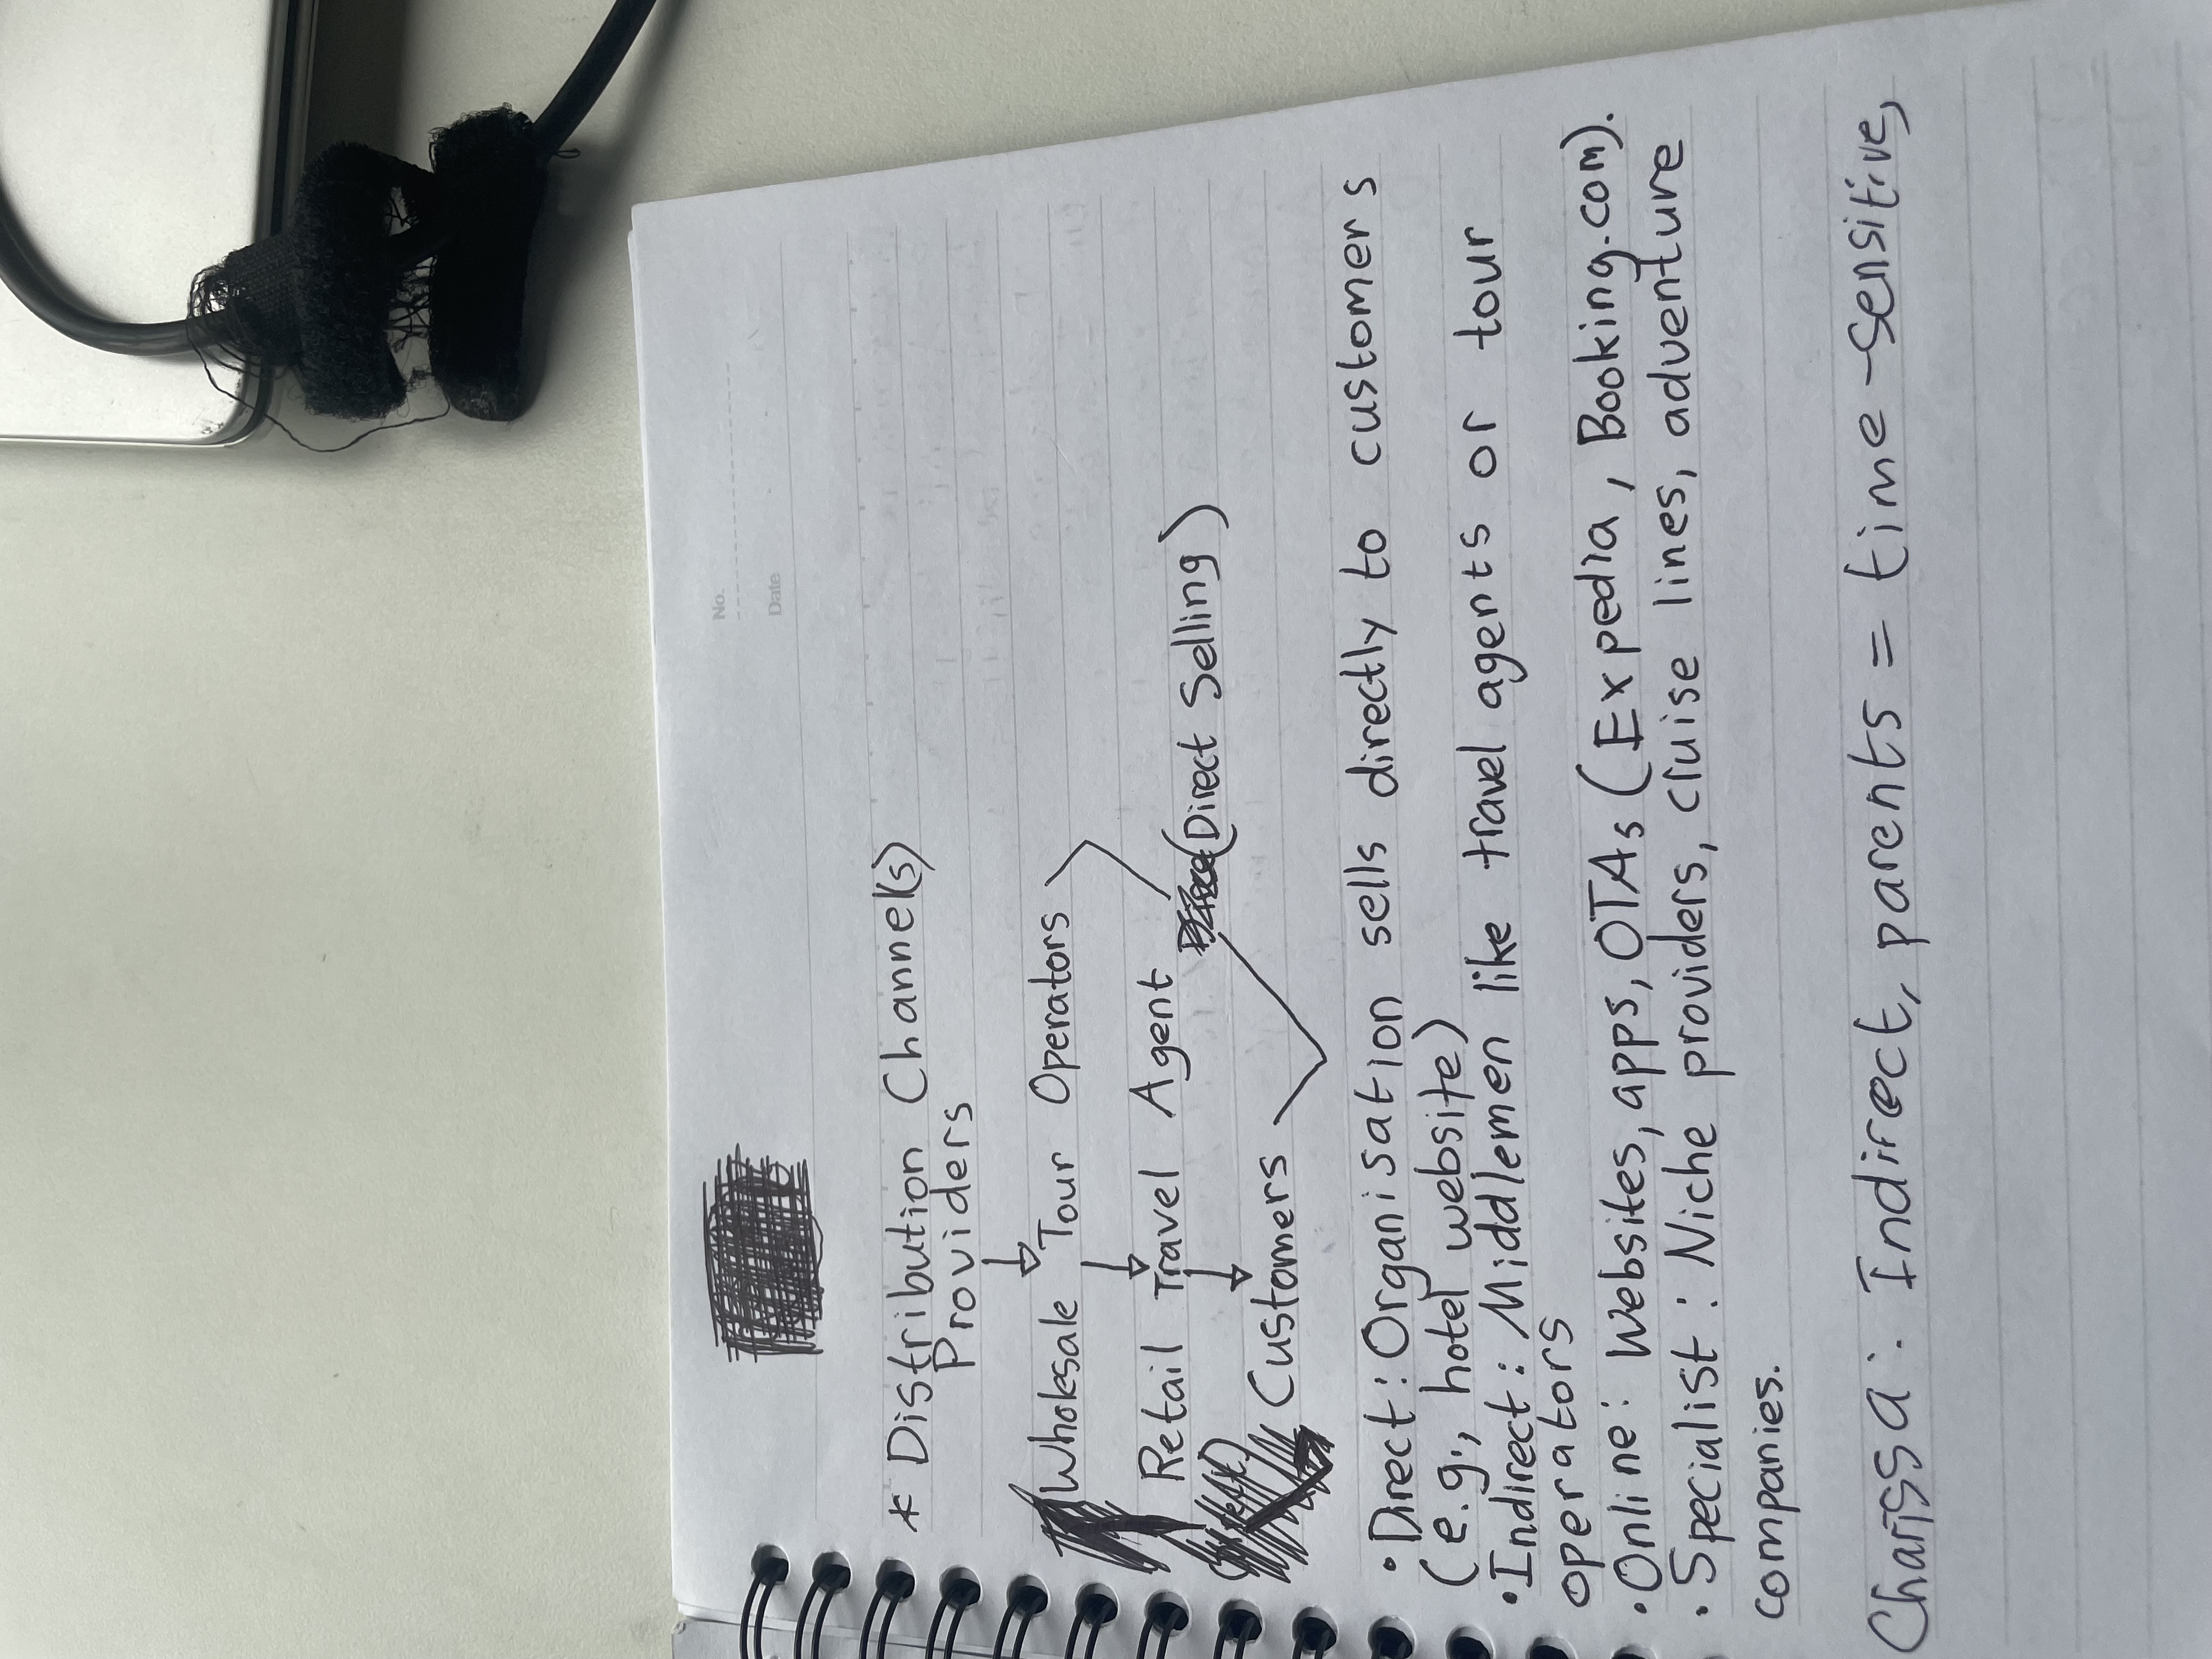 No.
Date
* Distribution Channel(s)
Providers
↓
Wholesale Tour Operators
↓
Retail Travel Agent
↓
(Direct Selling)
Customers
• Direct: Organisation sells directly to customers
(e.g., hotel website)
• Indirect: Middlemen like travel agents or tour
operators
• Online: Websites, apps, OTAs (Expedia, Booking.com).
• Specialist: Niche providers, cruise lines, adventure
companies.
Charissa: Indirect, parents = time-sensitive,